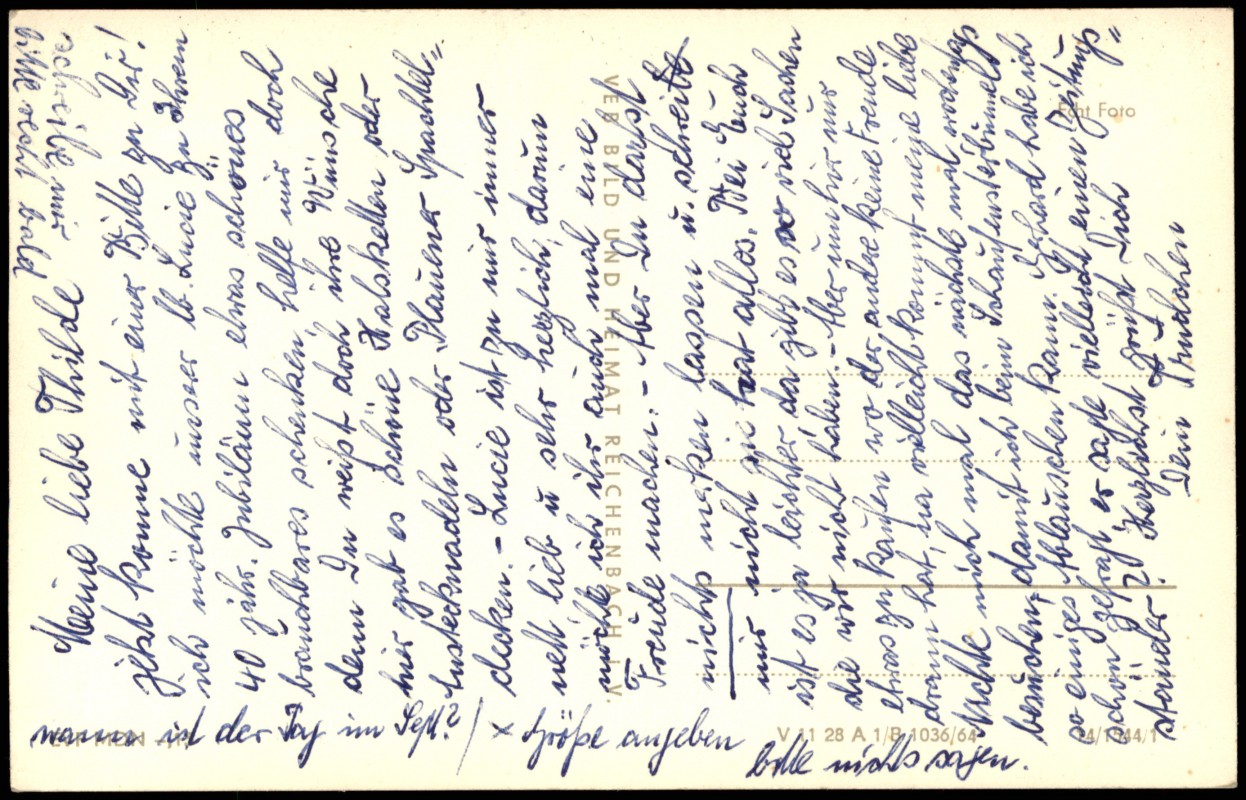 Meine liebe Thilde
jetzt komme mit einer Bitte zu Dir!
ich möchte unsrer lb. Lucie zu Ihrem
40 jähr. Jubiläum etwas schönes
brauchbares schenken, helfe mir doch
denn Du weißt doch ihre Wünsche
hier gab es schöne Halsketten oder
Anstecknadeln oder Plauener Spachtel-
decken. - Lucie ist zu mir immer
nett lieb u sehr herzlich, darum
möchte ich ihr auch mal eine
Freude machen. - Aber Du darfst
nichts merken lassen u. schreibe
mir nicht sie hat alles. Bei Euch
ist es ja leichter da gibt es so viel Sachen
die wir nicht haben. - Aber um hier nur
etwas zu kaufen wo der andere keine Freude
dran hat, na vielleicht kommt meine liebe
mich mal das nächste mal
damit ich beim Schaufensterbummel
so einiges Ablauschen kann. Gerhard habe ich
schon gefragt er sagte vielleicht einen Zeitung-
ständer? Herzlichst grüßt Dich
Dein Trudchen
schreibe mir
bitte recht bald
wann ist der Tag im Sept? / x Größe angeben
bitte nichts sagen.
VEB BILD UND HEIMAT REICHENBACH I. V.
Echt Foto
V 11 28 A 1/B 1036/64